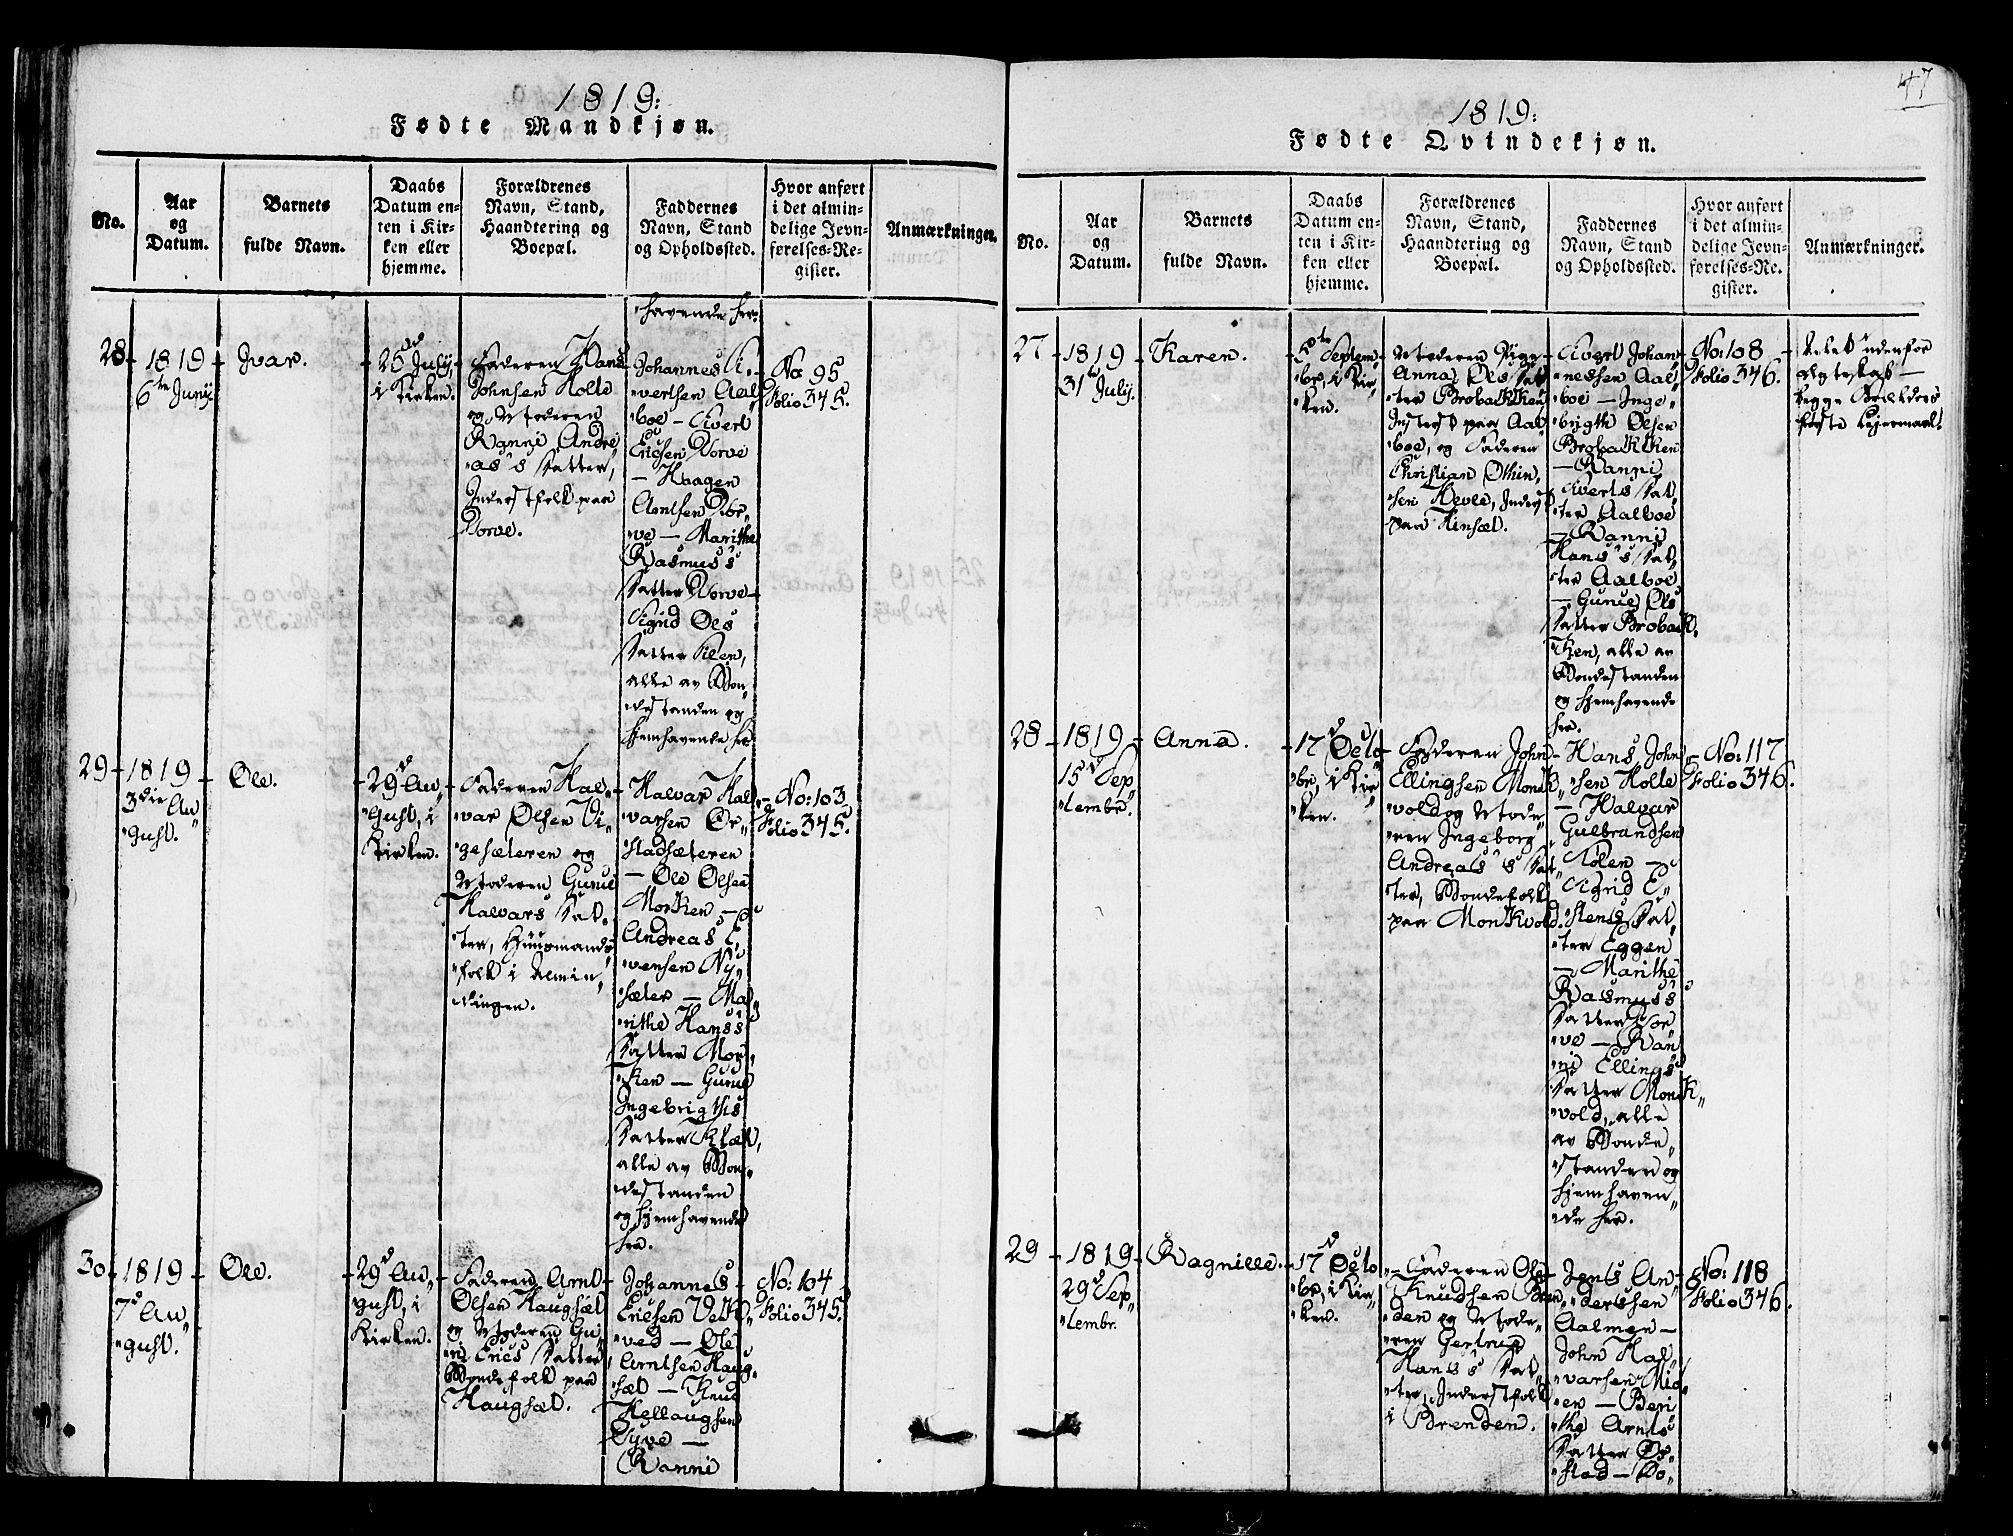 47
1819:
Fødte Mandkjøn.
No.
Aar
og
Datum.
Barnets
fulde Navn.
Daabs
Datum en-
ten i Kir-
ken eller
hjemme.
Forældrenes
Navn, Stand,
Haandtering og
Boepæl.
Faddernes
Navn, Stand
og Opholdssted.
Hvor anført
i det almin-
delige Jevn-
førelses-Re-
gister.
Anmærkninger.
havende her.
28
1819
6te Junij
Ivar.
25d July
i Kirken.
Faderen Hans
Johnsen Holle
og Moderen
Ranni Andre
as's Datter,
Inderstfolk paa
Dorve.
Johannes Si-
vertsen Aal
boe - Sivert
Ericsen Dorve
- Haagen
Arntsen Dor-
ve - Marithe
Rasmus's
Datter Dorve -
Sigrid Ols
Datter
alle av Bon
destanden og
hjemhavende her
No: 95
Folio 345.
29
1819
3die Au
gust.
Ole.
29d Au
gust, i
Kirken.
Faderen Hal
var Olsen Vi
gesæteren og
Moderen Guru
Halvars Dat
ter, Huusmands
folk i Almin
dingen.
Halvar Hal
varsen Ør
stadsæteren
- Ole Olsen
Morken -
Andreas E
vensen Ny
sæter - Ma
rithe Hans's
Datter Mor
ken - Guru
Ingebrigths
Datter
alle av Bon
destanden
og hjemhavende
her.
No: 103
Folio 345.
30
1819
7d Au
gust.
Ole.
29d Au
gust, i
Kirken.
Faderen Arnt
Olsen Haugsæt
og Moderen Gu
ru Erics Datter
Bondefolk paa
Haugsæt.
Johannes
Ericsen
ved - Ole
Arntsen Haug
sæt - Knud
Hellaugsen
- Ranni
No: 104
Folio 345.
1819:
Fødte Qvindekjøn.
No.
Aar
og
Datum.
Barnets
fulde Navn.
Daabs
Datum en-
ten i Kir-
ken eller
hjemme.
Forældrenes
Navn, Stand,
Haandtering og
Boepæl.
Faddernes
Navn, Stand
og Opholdssted.
Hvor anført
i det almin-
delige Jevn-
førelses-Re-
gister.
Anmærkninger.
27
1819
31te July.
Karen.
5te Septem
br, i Kir
ken.
Moderen Pige
Anna Ols Dat
ter Brobakken
Inderst paa Aal
boe, og Faderen
Christian Othin
sen Hevle, Inderst
paa Hinsæt.
Sivert Johan
nesen Aal
boe - Inge
brigth Olsen
Brobakken
- Ranni
Siverts Dat
ter Aalboe
- Ranni
Hans's Dat
ter Aalboe
- Guru Ols
Datter Brobak
ken, alle av
Bondestanden
og hjemhavende
her.
No: 108
Folio 346.
Avlet udenfor
Ægteskab -
begge Forælders
første Leiermaal.
28
1819
15d Sep
tembr.
Anna.
17d Octo
br, i Kir
ken.
Faderen John
Ellingsen Monsk
vold og Mode
ren Ingeborg
Andreas's Dat
ter, Bondefolk
paa Monskvold.
Hans John
sen Holle
- Halvar
Gulbrandsen
Kølen -
Sigrid E
stens Dat
ter Eggen
- Marithe
Rasmus's
Datter Dor
ve - Ran
ni Ellings
Datter Monsk
vold, alle
av Bonde
standen og
hjemhaven
de her.
No: 117
Folio 346.
29
1819
29d Sep
tembr.
Ragnille.
17d Octo
br, i Kir
ken.
Faderen Ole
Knudsen Bren
den og Mode
ren Gertrud
Hans's Dat
ter, Inderstfolk
i Brenden.
Jens An
dersen
Aalmen -
John Hal
varsen Mio
en - Beri
the Arnts
Datter Ør
stad - Bo
No: 118
Folio 346.